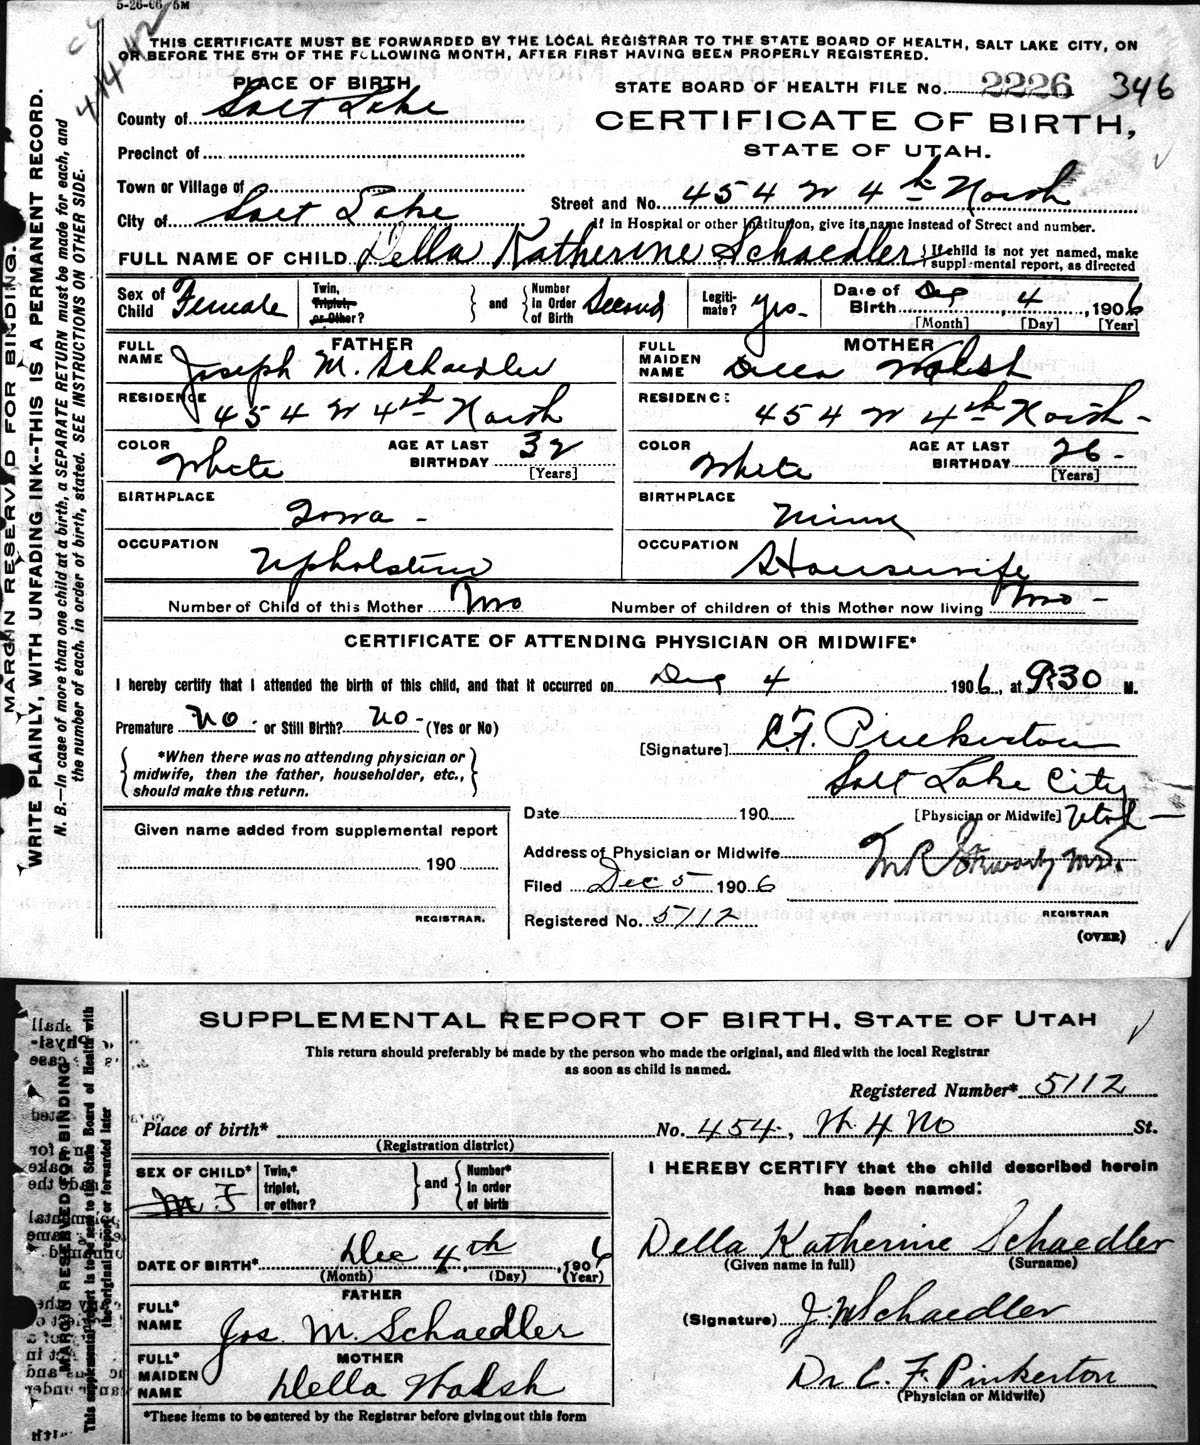 5-26-06 5M
THIS CERTIFICATE MUST BE FORWARDED BY THE LOCAL REGISTRAR TO THE STATE BOARD OF HEALTH, SALT LAKE CITY, ON
OR BEFORE THE 5TH OF THE FOLLOWING MONTH, AFTER FIRST HAVING BEEN PROPERLY REGISTERED.
MARGIN RESERVED FOR BINDING.
WRITE PLAINLY, WITH UNFADING INK--THIS IS A PERMANENT RECORD.
N. B.—In case of more than one child at a birth, a SEPARATE RETURN must be made for each, and
the number of each, in order of birth, stated. SEE INSTRUCTIONS ON OTHER SIDE.
PLACE OF BIRTH
STATE BOARD OF HEALTH FILE No. 2226 346
County of Salt Lake
CERTIFICATE OF BIRTH,
STATE OF UTAH.
Precinct of
Town or Village of
Street and No. 454 W 4th North
City of Salt Lake
If in Hospital or other Institution, give its name instead of Street and number.
FULL NAME OF CHILD Della Katherine Schaedler { If child is not yet named, make
supplemental report, as directed
Sex of Child Female
Twin, Triplet, or Other? } and { Number in Order of Birth Second
Legitimate? Yes
Date of Birth Dec 4, 1906
[Month] [Day] [Year]
FATHER
FULL NAME Joseph M. Schaedler
RESIDENCE 454 W 4th North
COLOR White AGE AT LAST BIRTHDAY 32 [Years]
BIRTHPLACE Iowa -
OCCUPATION Upholsterer
MOTHER
FULL MAIDEN NAME Della Walsh
RESIDENCE 454 W 4th North -
COLOR White AGE AT LAST BIRTHDAY 26 - [Years]
BIRTHPLACE Minn
OCCUPATION Housewife
Number of Child of this Mother Two Number of children of this Mother now living Two -
CERTIFICATE OF ATTENDING PHYSICIAN OR MIDWIFE*
I hereby certify that I attended the birth of this child, and that it occurred on Dec 4 1906, at 9:30 M.
Premature No - or Still Birth? No - (Yes or No)
*When there was no attending physician or
midwife, then the father, householder, etc.,
should make this return.
[Signature] C.F. Pinkerton
Salt Lake City
[Physician or Midwife] Utah —
Given name added from supplemental report
190
REGISTRAR.
Date 190
Address of Physician or Midwife
Filed Dec 5 1906
Registered No. 5112
REGISTRAR
(OVER)
SUPPLEMENTAL REPORT OF BIRTH, STATE OF UTAH
This return should preferably be made by the person who made the original, and filed with the local Registrar
as soon as child is named.
MARGIN RESERVED FOR BINDING
This supplemental report is to be sent to the State Board of Health with
the original report or forwarded later
Registered Number* 5112
Place of birth* No. 454, W. 4 No St.
(Registration district)
SEX OF CHILD* M F
Twin,* triplet, or other? } and { Number* in order of birth
DATE OF BIRTH* Dec 4th, 1906
(Month) (Day) (Year)
FATHER
FULL* NAME Jos. M. Schaedler
MOTHER
FULL* MAIDEN NAME Della Walsh
*These items to be entered by the Registrar before giving out this form
I HEREBY CERTIFY that the child described herein
has been named:
Della Katherine Schaedler
(Given name in full) (Surname)
(Signature) J. M Schaedler
Dr C. F. Pinkerton
(Physician or Midwife)